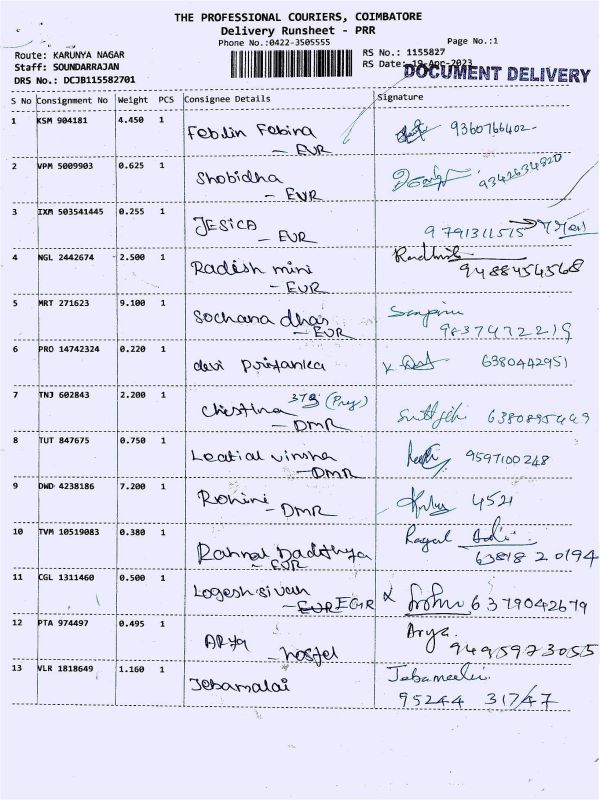 THE PROFESSIONAL COURIERS, COIMBATORE
Delivery Runsheet - PRR
Phone No.:0422-3505555
Page No.:1
Route: KARUNYA NAGAR
RS No.: 1155827
Staff: SOUNDARRAJAN
RS Date: 19-Apr-2023
DRS No.: DCJB115582701
DOCUMENT DELIVERY
S No Consignment No Weight PCS Consignee Details Signature
1 KSM 904181 4.450 1 Feblin Febina 9360766402
- EVR
2 VPM 5009903 0.625 1 Shobidha 9342634820
- EVR
3 IXM 503541445 0.255 1 JESICA 9791311515
- EVR
4 NGL 2442674 2.500 1 Radish mini
- EVR 9488454568
5 MRT 271623 9.100 1 Sochana dhas
- EVR 9837472219
6 PRO 14742324 0.220 1 devi 6380442951
7 TNJ 602843 2.200 1 Chestina 378 (Prey)
- DMR 6380895449
8 TUT 847675 0.750 1 Leatial vinsha 9597100248
- DMR
9 DWD 4238186 7.200 1 Rohini 4521
- DMR
10 TVM 10519083 0.380 1 Ragul
- EVR 63818 20194
11 CGL 1311460 0.500 1 Logesh sivah
- EVR EGR 6379042679
12 PTA 974497 0.495 1 ARYA Arya.
- hostel 9495973055
13 VLR 1818649 1.160 1 Jebamalai
95244 31747